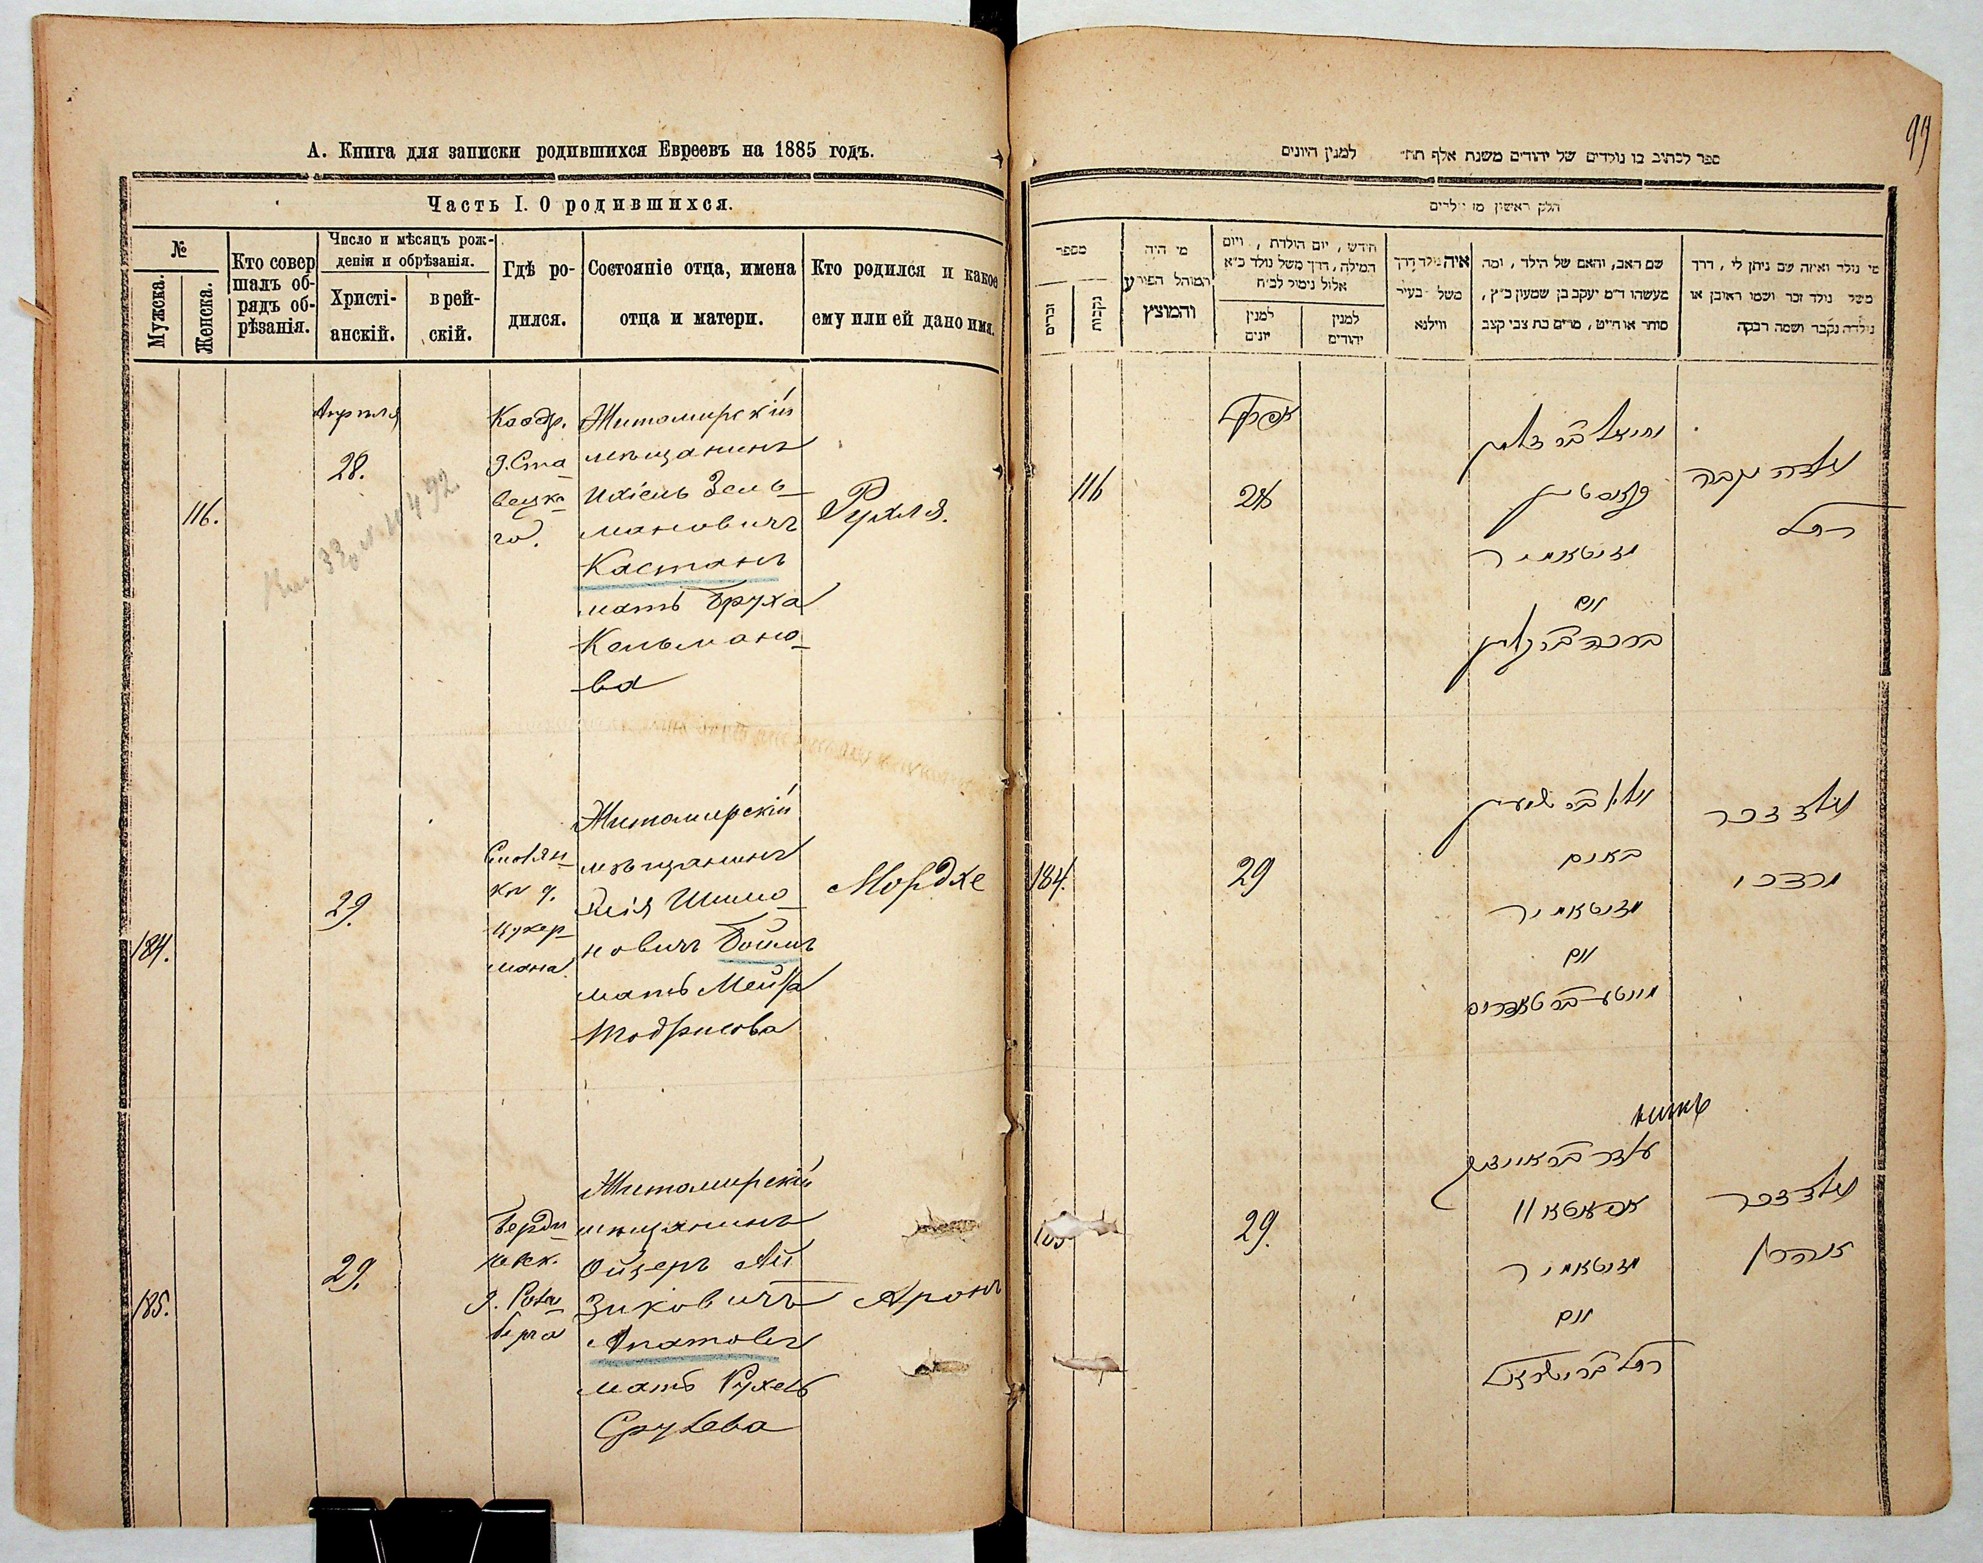 А. Книга для записки родившихся Евреевъ на 1885 годъ.
Часть I. О родившихся.
№
Мужска.
Женска.
Кто совер
шалъ об-
рядъ об-
рѣзанія.
Число и мѣсяцъ рож-
денія и обрѣзанія.
Христі-
анскій.
в рей-
скій.
Гдѣ ро-
дился.
Состояніе отца, имена
отца и матери.
Кто родился и какое
ему или ей дано имя.
116.
Апрѣля
28.
Житомирскій
мѣщанинъ
Ихіель Зель-
мановичъ
Кастанъ
мать Бруха
Кельмано-
ва
Рухля.
184.
29.
Житомирскій
мѣщанинъ
Элія Шимо-
новичъ Боймъ
мать
Тодрисова
Мордхе
185.
29.
Житомирскій
мѣщанинъ
Ойзеръ Ай
зиковичъ
Апатовъ
мать Рухель
Срулева
Аронъ
99
ספר לכתוב בו נולדים של יהודים משנת אלף תת״ למנין היונים
חלק ראשון מן ילדים
מספר
זכרים
נקבות
מי היה
המוהל הפורע
והמוצץ
חודש, יום הולדת, ויום
המילה, דרך משל נולד כ״א
אלול נימול לכ״ח
למנין
יונים
למנין
יהודים
איה נולד דרך
משל בעיר
ווילנא
שם האב, והאם של הילד, ומה
מעשהו ד״מ יעקב בן שמעון כ״ץ,
סוחר או חייט, מרים בת צבי קצב
מי נולד ואיזה שם ניתן לו, דרך
משל נולד זכר ושמו ראובן או
נולדה נקבה ושמה רבקה
116
אפריל
28
זיטאמיר
ואם
נולדה נקבה
רחל
184.
29
באום
זיטאמיר
ואם
נולד זכר
מרדכי
29.
זיטאמיר
ואם
רחל בר ישראל
נולד זכר
אהרן